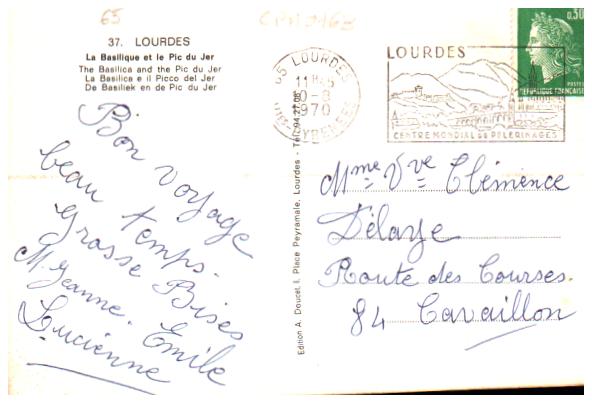 65
37. LOURDES
La Basilique et le Pic du Jer
The Basilica and the Pic du Jer
La Basilica e il Picco del Jer
De Basiliek en de Pic du Jer
Bon voyage
beau temps.
grosse Bises
M. Jeanne. Emile
Lucienne
Edition A. Doucet 11, Place Peyramale, Lourdes - Tél. 94.27.08
65 LOURDES
1970
HTES-PYRENEES
LOURDES
CENTRE MONDIAL DE PELERINAGES
0,30
POSTES
REPUBLIQUE FRANCAISE
Mme Vve Clémence
Délaye
Route des Courses.
84 Cavaillon